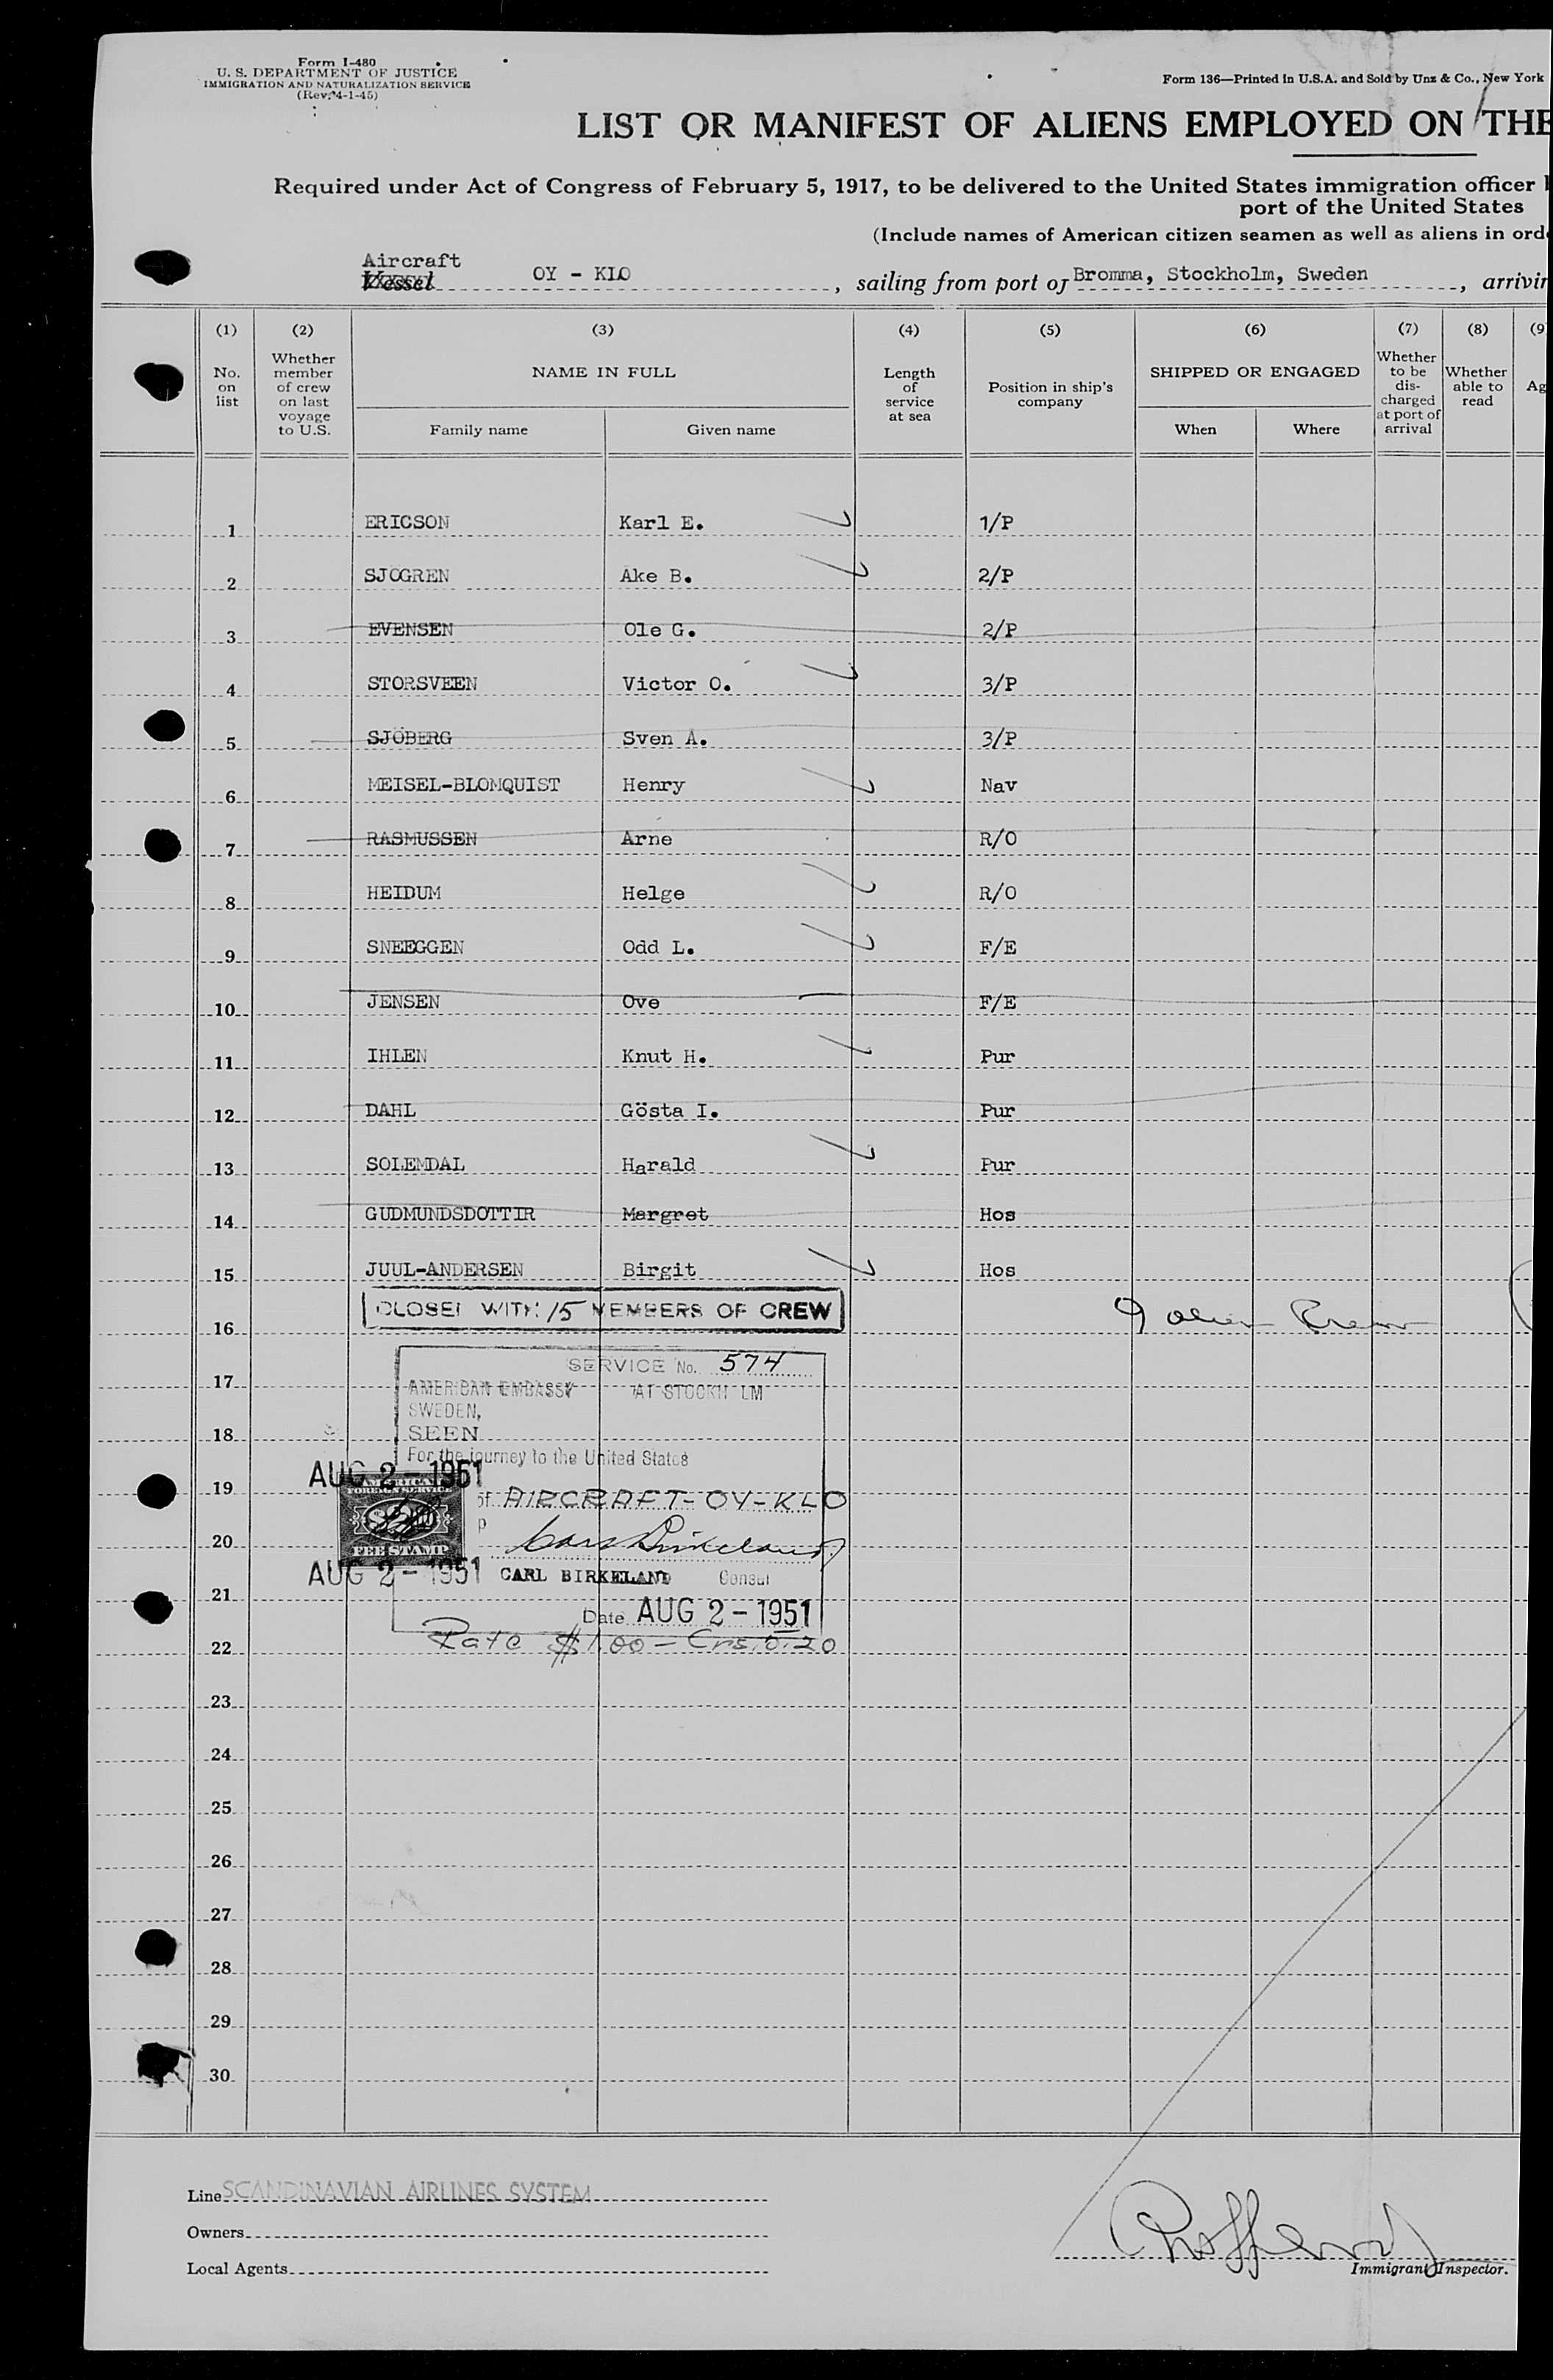 Form I-480
U. S. DEPARTMENT OF JUSTICE
IMMIGRATION AND NATURALIZATION SERVICE
(Rev. 4-1-45)
Form 136—Printed in U.S.A. and Sold by Unz & Co., New York
LIST OR MANIFEST OF ALIENS EMPLOYED ON THE
Required under Act of Congress of February 5, 1917, to be delivered to the United States immigration officer
port of the United States
(Include names of American citizen seamen as well as aliens in ord
Aircraft
Vessel OY - KLO, sailing from port of Bromma, Stockholm, Sweden, arrivin
(1) (2) (3) (4) (5) (6) (7) (8) (9
No. on list
Whether member of crew on last voyage to U.S.
NAME IN FULL
Family name Given name
Length of service at sea
Position in ship's company
SHIPPED OR ENGAGED
When Where
Whether to be discharged at port of arrival
Whether able to read
Ag
1 ERICSON Karl E. 1/P
2 SJÖGREN Ake B. 2/P
3 EVENSEN Ole G. 2/P
4 STORSVEEN Victor O. 3/P
5 SJÖBERG Sven A. 3/P
6 MEISEL-BLOMQUIST Henry Nav
7 RASMUSSEN Arne R/O
8 HEIDUM Helge R/O
9 SNEEGGEN Odd L. F/E
10 JENSEN Ove F/E
11 IHLEN Knut H. Pur
12 DAHL Gösta I. Pur
13 SOLEMDAL Harald Pur
14 GUDMUNDSDOTTIR Margret Hos
15 JUUL-ANDERSEN Birgit Hos
CLOSED WITH 15 MEMBERS OF CREW
16 9 alien Crew
SERVICE No. 574
17 AMERICAN EMBASSY AT STOCKHOLM
SWEDEN,
18 SEEN
For the journey to the United States
AUG 2 - 1951
19 AMERICAN FOREIGN SERVICE of AIRCRAFT-OY-KLO
20 FEE STAMP Carl Birkeland
AUG 2 - 1951 CARL BIRKELAND Consul
21
Date AUG 2 - 1951
22 Rate $1.00 - Crs. 5.20
23
24
25
26
27
28
29
30
Line SCANDINAVIAN AIRLINES SYSTEM
Owners
Local Agents
Immigrant Inspector.